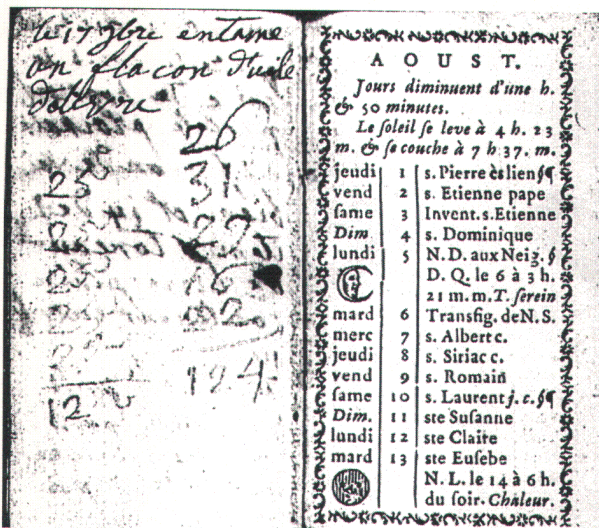 le 17 9bre entame
un flacon d'uile
d'ollive
26
25 31
2
25 26
22
25
124
12
AOUST.
Jours diminuent d'une h.
& 50 minutes.
Le ſoleil ſe leve à 4 h. 23
m. & ſe couche à 7 h 37. m.
jeudi 1 s. Pierre ès lien §¶
vend 2 s. Etienne pape
ſame 3 Invent. s. Etienne
Dim. 4 s. Dominique
lundi 5 N. D. aux Neig. §
D. Q. le 6 à 3 h.
21 m. m. T. ſerein
mard 6 Transfig. de N. S.
merc 7 s. Albert c.
jeudi 8 s. Siriac c.
vend 9 s. Romain
ſame 10 s. Laurent j. c. §¶
Dim. 11 ste Suſanne
lundi 12 ste Claire
mard 13 ste Euſebe
N. L. le 14 à 6 h.
du ſoir. Chaleur.